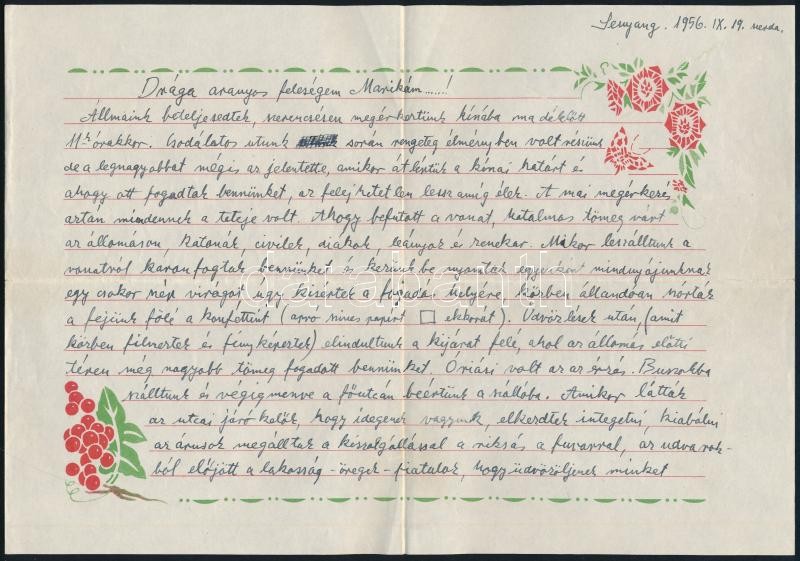 Senyang. 1956. IX. 19. szerda.
Drága aranyos feleségem Marikám......!
Álmaink beteljesedtek, szerencsésen megérkeztünk kínába ma délelőtt
11 órakkor. Csodálatos utunk során rengeteg élményben volt részünk
de a legnagyobbat mégis az jelentette, amikor átléptük a kínai határt és
ahogy ott fogadtak bennünket, az felejthetetlen lessz amíg élek. A mai megérkezés
aztán mindennek a teteje volt. Ahogy befutott a vonat, hatalmas tömeg várt
az állomáson, katonák, civilek, diákok, leányok és zenekar. Mikor leszálltunk a
vonatról karonfogtak bennünket és kezünkbe nyomtak egyenként mindnyájunknak
egy csokor szép virágot úgy kisértek a fogadás helyére közben állandóan szórták
a fejünk fölé a konfettiút (apró szines papirt □ ekkorát). Üdvözlések után, (amit
közben filmeztek és fényképeztek) elindultunk a kijárat felé, ahol az állomás előtti
téren még nagyobb tömeg fogadott bennünket. Óriási volt az az érzés. Buszokba
szálltunk és végigmenve a főutcán beértünk a szállóba. Amikor látták
az utcai járókelők, hogy idegenek vagyunk, elkezdtek integetni, kiabálni
az árusok megálltak a kiszolgállással a riksás a fuvarral, az udvarok-
ból előjött a lakosság - öregek - fiatalok, hogy üdvözöljenek minket
darabanth